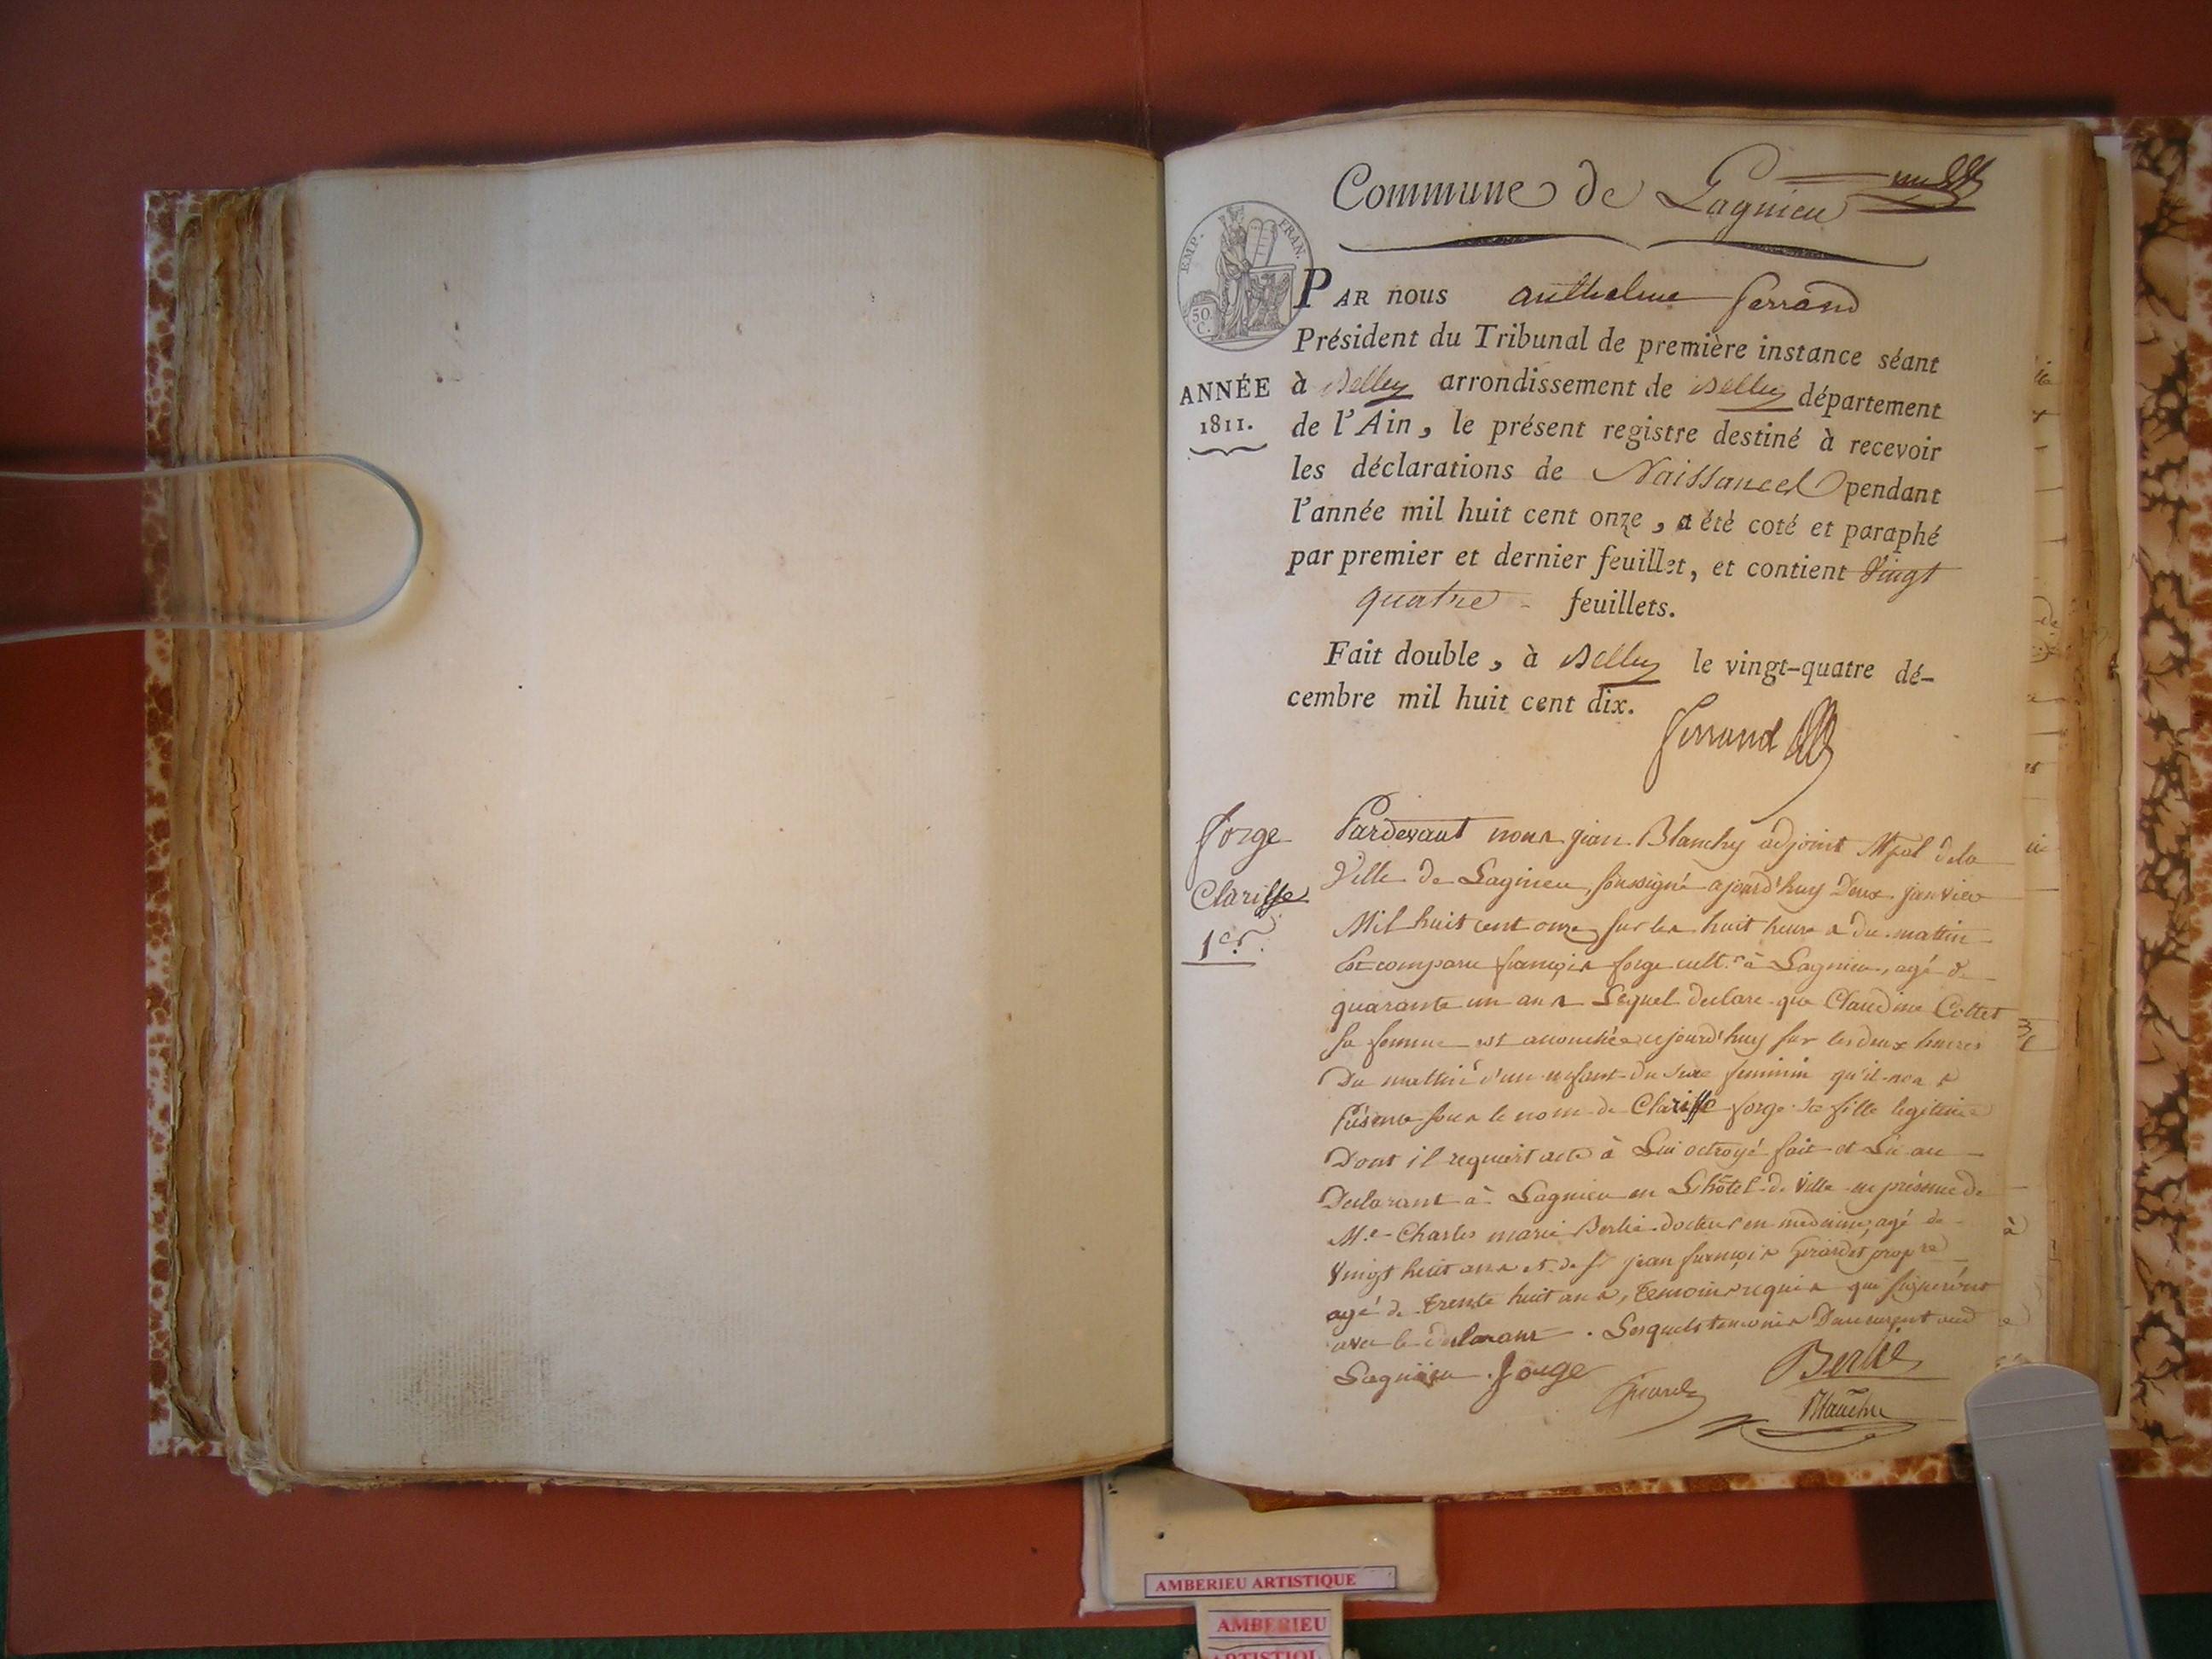 Commune de Lagnieu
EMP. FRAN.
50.
C.
PAR nous anthelme ferrand
Président du Tribunal de première instance séant
ANNÉE
1811.
à Belley arrondissement de Belley département
de l'Ain, le présent registre destiné à recevoir
les déclarations de Naissances pendant
l'année mil huit cent onze, a été coté et paraphé
par premier et dernier feuillet, et contient Vingt
quatre feuillets.
Fait double, à Belley le vingt-quatre dé-
cembre mil huit cent dix.
ferrand
forge
Clarisse
1er.
Pardevant nous jean Blanchy adjoint Mpal dela
Ville de Lagnieu, soussigné ajourd'huy Deux janvier
Mil huit cent onze sur les huit heures du mattin
Est comparu françois forge cult.r à Lagnieu, agé de
quarante un ans Lequel declare que Claudine Cottet
sa femme est accouchée cejourd'huy sur les deux heures
Du mattin d'un enfant du sexe feminin qu'il nous
Présente sous le nom de Clarisse forge sa fille legitime
Dont il requiert acte à Lui octroyé fait et Lu au
Declarant à Lagnieu en L'hôtel de Ville en présence de
M.e Charles marie Berlie docteur en medecine, agé de
Vingt huit ans et de s.r jean françois Girardet propre
agé de trente huit ans, temoins requis qui signeront
avec le declarant. Lesquels temoins Demeurent aud
Lagnieu. forge
Berlié
Girard
Blanchy
AMBERIEU ARTISTIQUE
AMBERIEU
ARTISTIQU